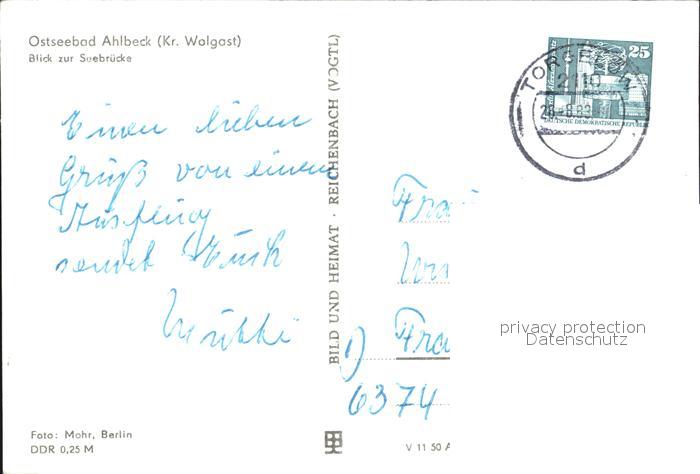 Ostseebad Ahlbeck (Kr. Wolgast)
Blick zur Seebrücke
Einen lieben
Gruß von einem
Ausflug
sendet Euch
Mutti
Foto: Mohr, Berlin
DDR 0,25 M
BILD UND HEIMAT · REICHENBACH (VOGTL)
V 11 50 A
25
DEUTSCHE DEMOKRATISCHE REPUBLIK
2110 2
d
Fra
Fra
1)
6374
privacy protection
Datenschutz